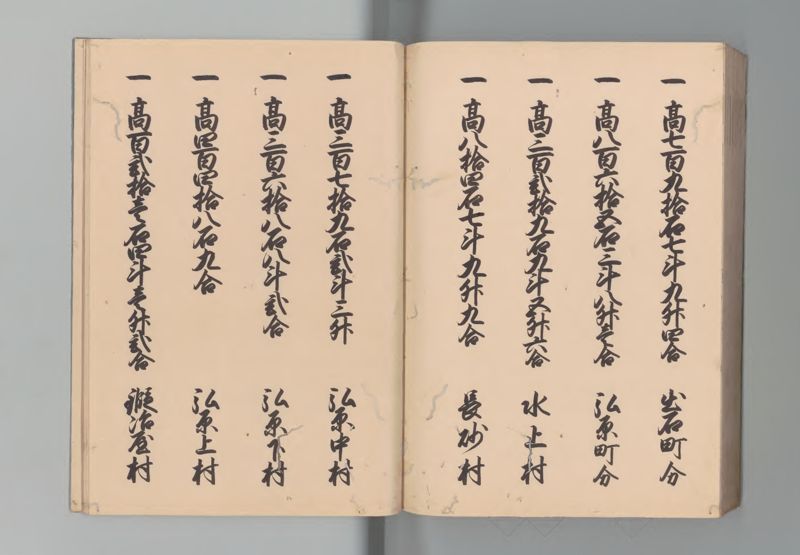 一 高七百九拾石七斗九升四合 出石町分
一 高八百六拾五石三斗八升壱合 弘原町分
一 高三百弐拾九石九斗五升六合 水上村
一 高八拾四石七斗九升九合 長砂村
一 高三百七拾九石弐斗三升 弘原中村
一 高三百六拾八石八斗弐合 弘原下村
一 高四百四拾八石九合 弘原上村
一 高百弐拾壱石四斗壱升弐合 鍛冶屋村